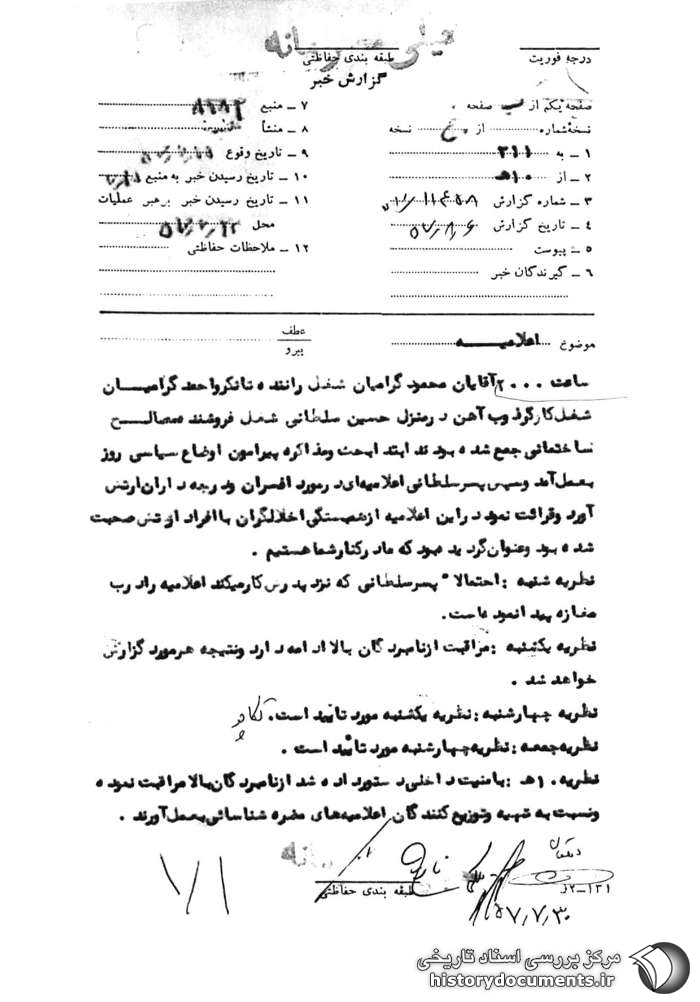 خیلی محرمانه
درجه فوریت
طبقه بندی حفاظتی
گزارش خبر
صفحه یکم از صفحه
نسخه شماره از نسخه
۱ – به ۳۱۱
۲ – از ۱۰هـ
۳ – شماره گزارش
۴ – تاریخ گزارش ۵۷٫۸٫۶
۵ – پیوست
۶ – گیرندگان خبر
۷ – منبع
۸ – منشأ
۹ – تاریخ وقوع
۱۰ – تاریخ رسیدن خبر به منبع
۱۱ – تاریخ رسیدن خبر برهبر عملیات
محل
۱۲ – ملاحظات حفاظتی
موضوع اعلامیـــه
عطف
پیرو
ساعت ۲۰۰۰ آقایان محمود گرامیان شغل راننده تانکر واحد گرامیـــان
شغل کارگر ذوب آهن در منزل حسین سلطانی شغل فروشنده مصالـــح
ساختمانی جمع شده بودند ابتدا بحث ومذاکره پیرامون اوضاع سیاسی روز
بعمل آمد وسپس پسر سلطانی اعلامیه‌ای در مورد افسران ودرجه داران ارتش
آورد وقرائت نمود در این اعلامیه از همبستگی اخلالگران با افراد ارتش صحبت
شده بود وعنوان گردیده بود که ما در کنار شما هستیم .
نظریه شنبه : احتمالا" پسر سلطانی که نزد پدرش کار میکند اعلامیه را درب
مغازه پیدا نموده است.
نظریه یکشنبه : مراقبت از نامبردگان بالا ادامه دارد ونتیجه هر مورد گزارش
خواهد شد .
نظریه چهارشنبه : نظریه یکشنبه مورد تأیید است.
نظریه جمعه : نظریه چهارشنبه مورد تأیید است .
نظریه ۱۰هـ : بامنیت داخلی دستور داده شد از نامبردگان بالا مراقبت نموده
ونسبت به تهیه وتوزیع کنندگان اعلامیه‌های مضره شناسائی بعمل آورند .
طبقه بندی حفاظتی
۱۳۱–۲ر
۵۷٫۷٫۳۰
۷/۱
مرکز بررسی اسناد تاریخی
historydocuments.ir